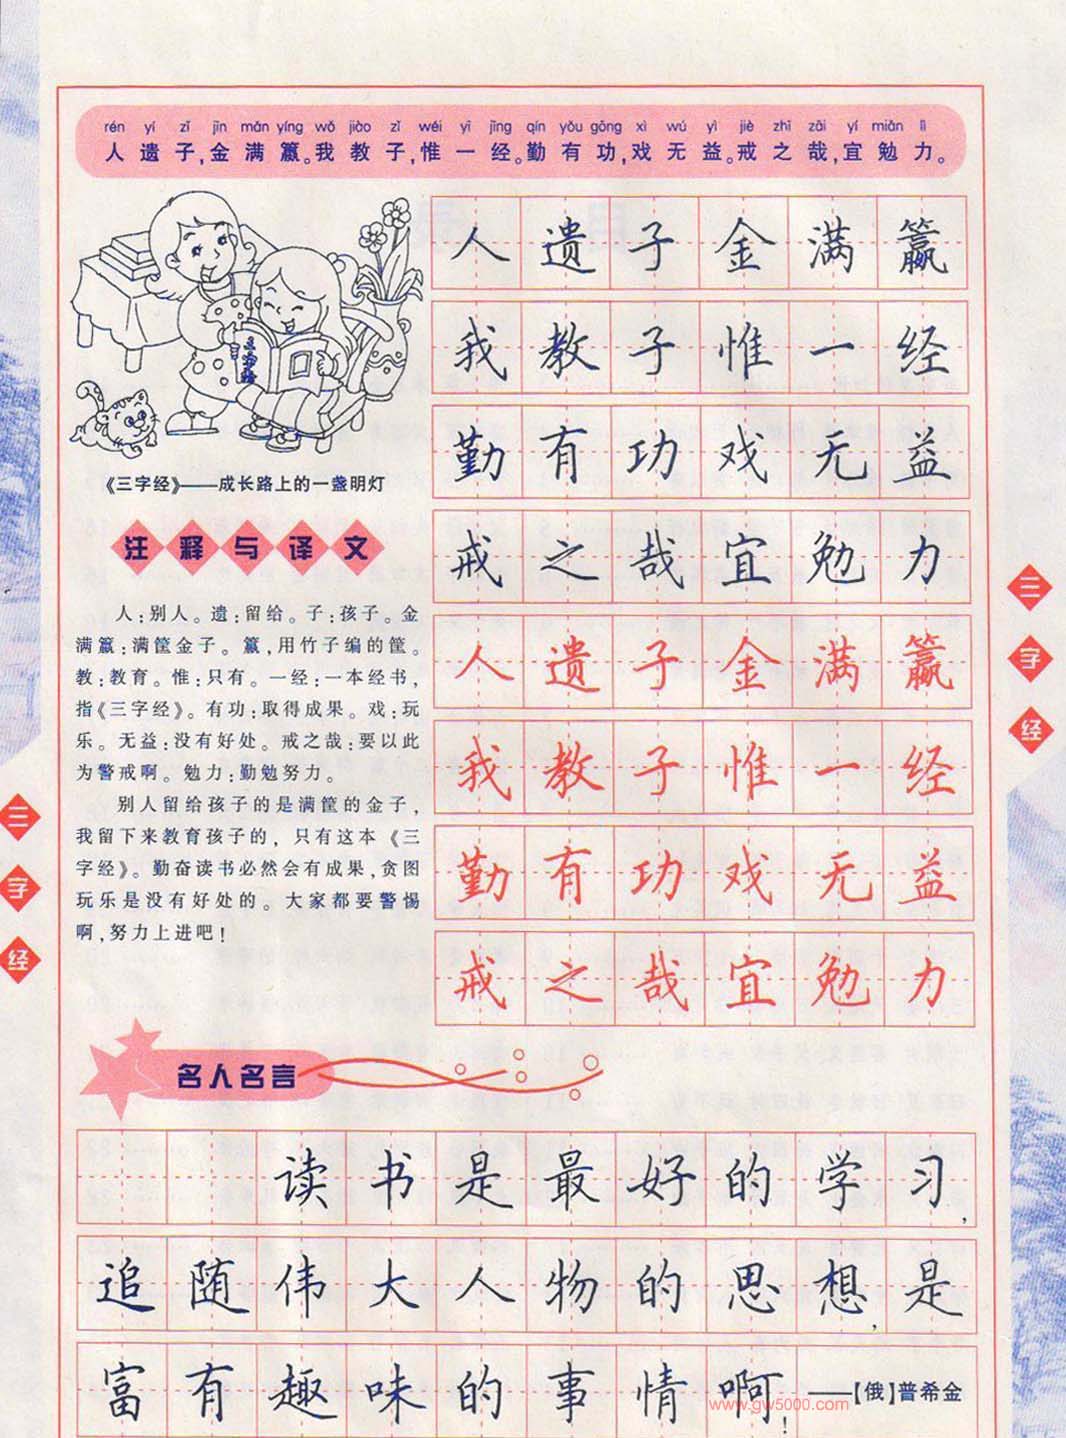 rén yí zǐ jīn mǎn yíng wǒ jiào zǐ wéi yī jīng qín yǒu gōng xì wú yì jiè zhī zāi yí miǎn lì
人遗子,金满籯。我教子,惟一经。勤有功,戏无益。戒之哉,宜勉力。
三字经
《三字经》——成长路上的一盏明灯
注释与译文
人:别人。遗:留给。子:孩子。金
满籯:满筐金子。籯,用竹子编的筐。
教:教育。惟:只有。一经:一本经书,
指《三字经》。有功:取得成果。戏:玩
乐。无益:没有好处。戒之哉:要以此
为警戒啊。勉力:勤勉努力。
别人留给孩子的是满筐的金子,
我留下来教育孩子的,只有这本《三
字经》。勤奋读书必然会有成果,贪图
玩乐是没有好处的。大家都要警惕
啊,努力上进吧!
人遗子金满籯
我教子惟一经
勤有功戏无益
戒之哉宜勉力
人遗子金满籯
我教子惟一经
勤有功戏无益
戒之哉宜勉力
三字经
三字经
名人名言
读书是最好的学习,
追随伟大人物的思想,是
富有趣味的事情啊!——【俄】普希金
www.gw5000.com